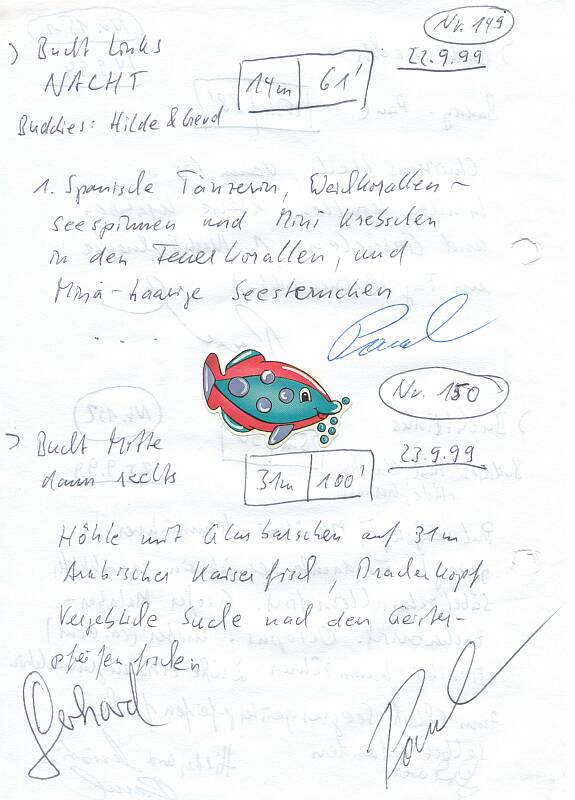 Nr. 149
22.9.99
) Bucht Links
NACHT
14m 61'
Buddies: Hilde & Gerd
1. Spanische Tänzerin, Weichkorallen-
seespinnen und Mini Krebschen
in den Feuerkorallen, und
Mini-haarige Seesternchen
. . . .
Nr. 150
23.9.99
) Bucht Mitte
dann rechts
31m 100'
Höhle mit Glasbarschen auf 31m
Arabischer Kaiserfisch, Drachenkopf
Vergebliche Suche nach den Geister-
pfeifenfischen
Gerhard